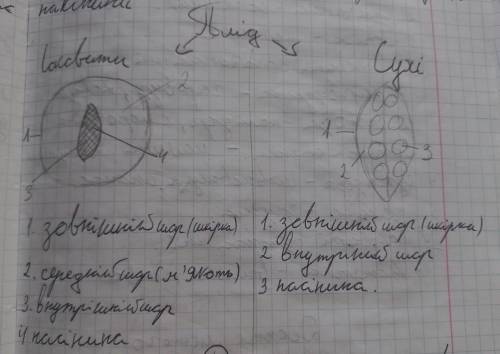 насінини
Плід
Соковити
Сухі
2
1
4
3
1
3
2
1. зовнішній шар (шкірка)
2. середній шар (м'якоть)
3. внутрішній шар
4 насінина
1. зовнішній шар (шкірка)
2 внутрішній шар
3 насінина.